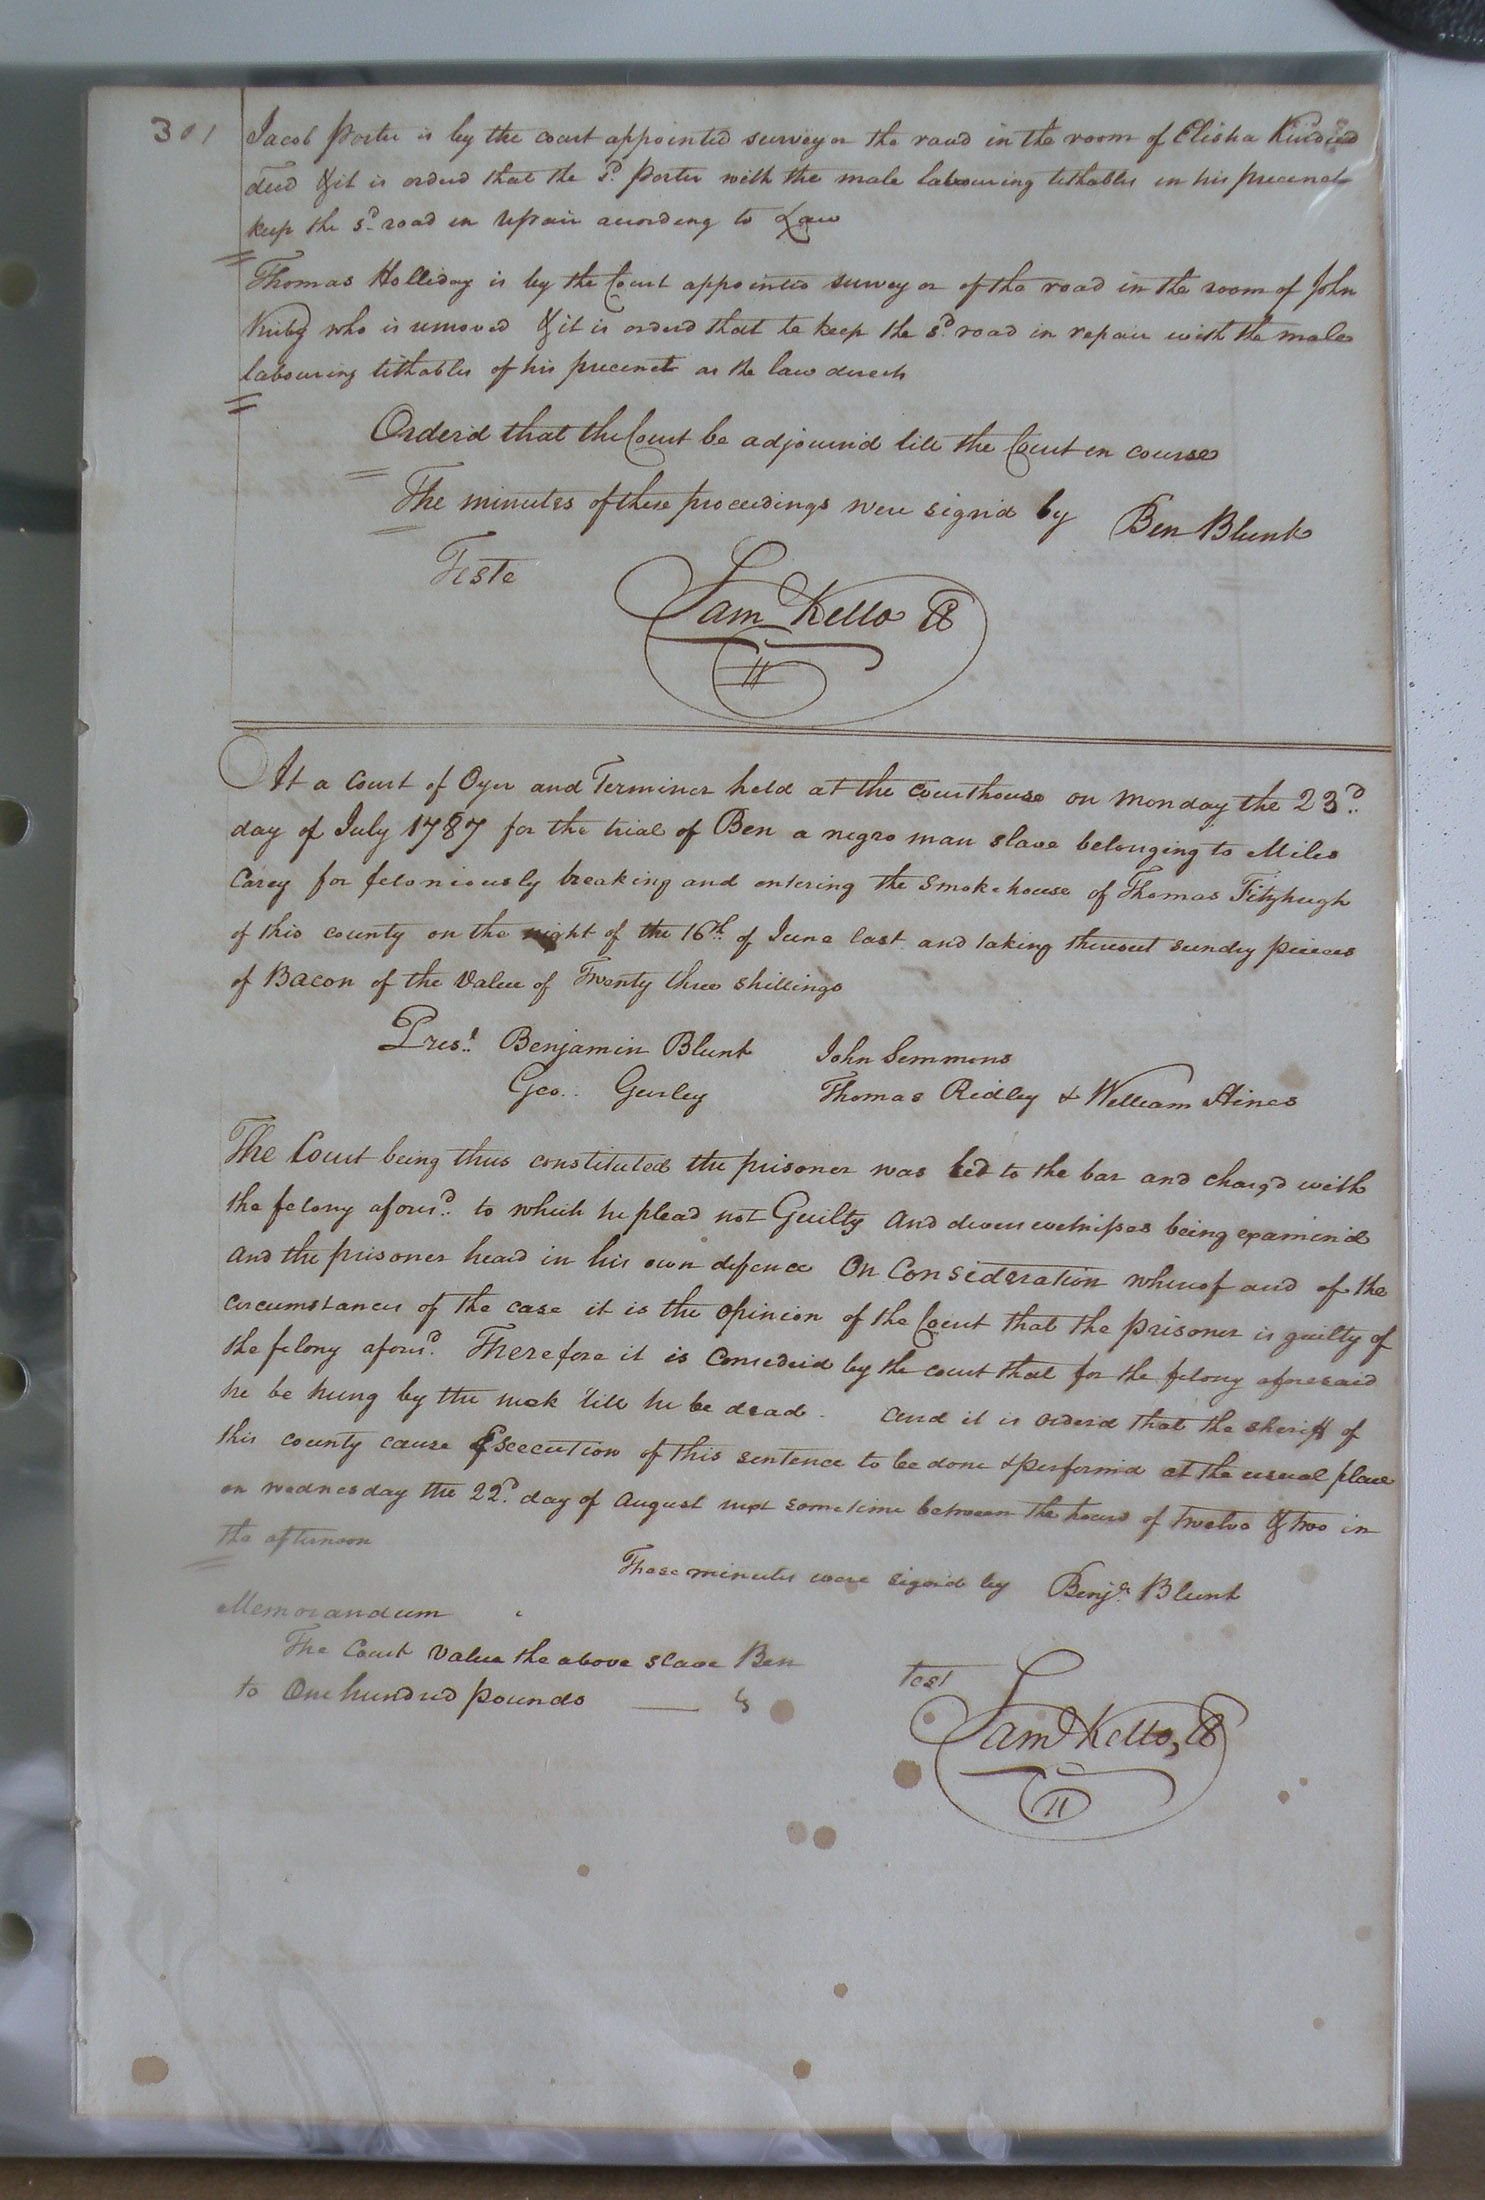 301
Jacob Porter is by the court appointed surveyor the road in the room of Elisha Kindred
decd & it is orderd that the sd. Porter with the male labouring tithables in his precinct
keep the sd. road in repair according to Law
Thomas Holliday is by the Court appointed surveyor of the road in the room of John
who is removed & it is orderd that he keep the sd. road in repair with the male
labouring tithables of his precinct as the law directs
Orderd that the Court be adjournd till the Court in course
The minutes of these proceedings were signd by Ben Blunt
Teste
Sam Kello
At a Court of Oyer and Terminer held at the courthouse on Monday the 23d.
day of July 1787 for the trial of Ben a negro man slave belonging to Miles
Carey for feloniously breaking and entering the Smokehouse of Thomas Fitzhugh
of this county on the night of the 16th. of June last and taking thereout sundry pieces
of Bacon of the Value of Twenty three shillings
Prest. Benjamin Blunt John Simmons
Geo. Gurley Thomas Ridley & William Hines
The Court being thus constituted the prisoner was led to the bar and chargd with
the felony aforesd. to which he plead not Guilty And divers witnesses being examined
and the prisoner heard in his own defence On Consideration whereof and of the
circumstances of the case it is the opinion of the Court that the prisoner is guilty of
the felony aforesd. Therefore it is Considerd by the court that for the felony aforesaid
he be hung by the neck till he be dead. And it is orderd that the sheriff of
this county cause Execution of this sentence to be done & performd at the usual place
on wednesday the 22d. day of August next sometime between the hours of twelve & two in
the afternoon
These minutes were signd by Benja. Blunt
Memorandum
The Court value the above slave Ben
to One hundred pounds
Test
Saml Kello,